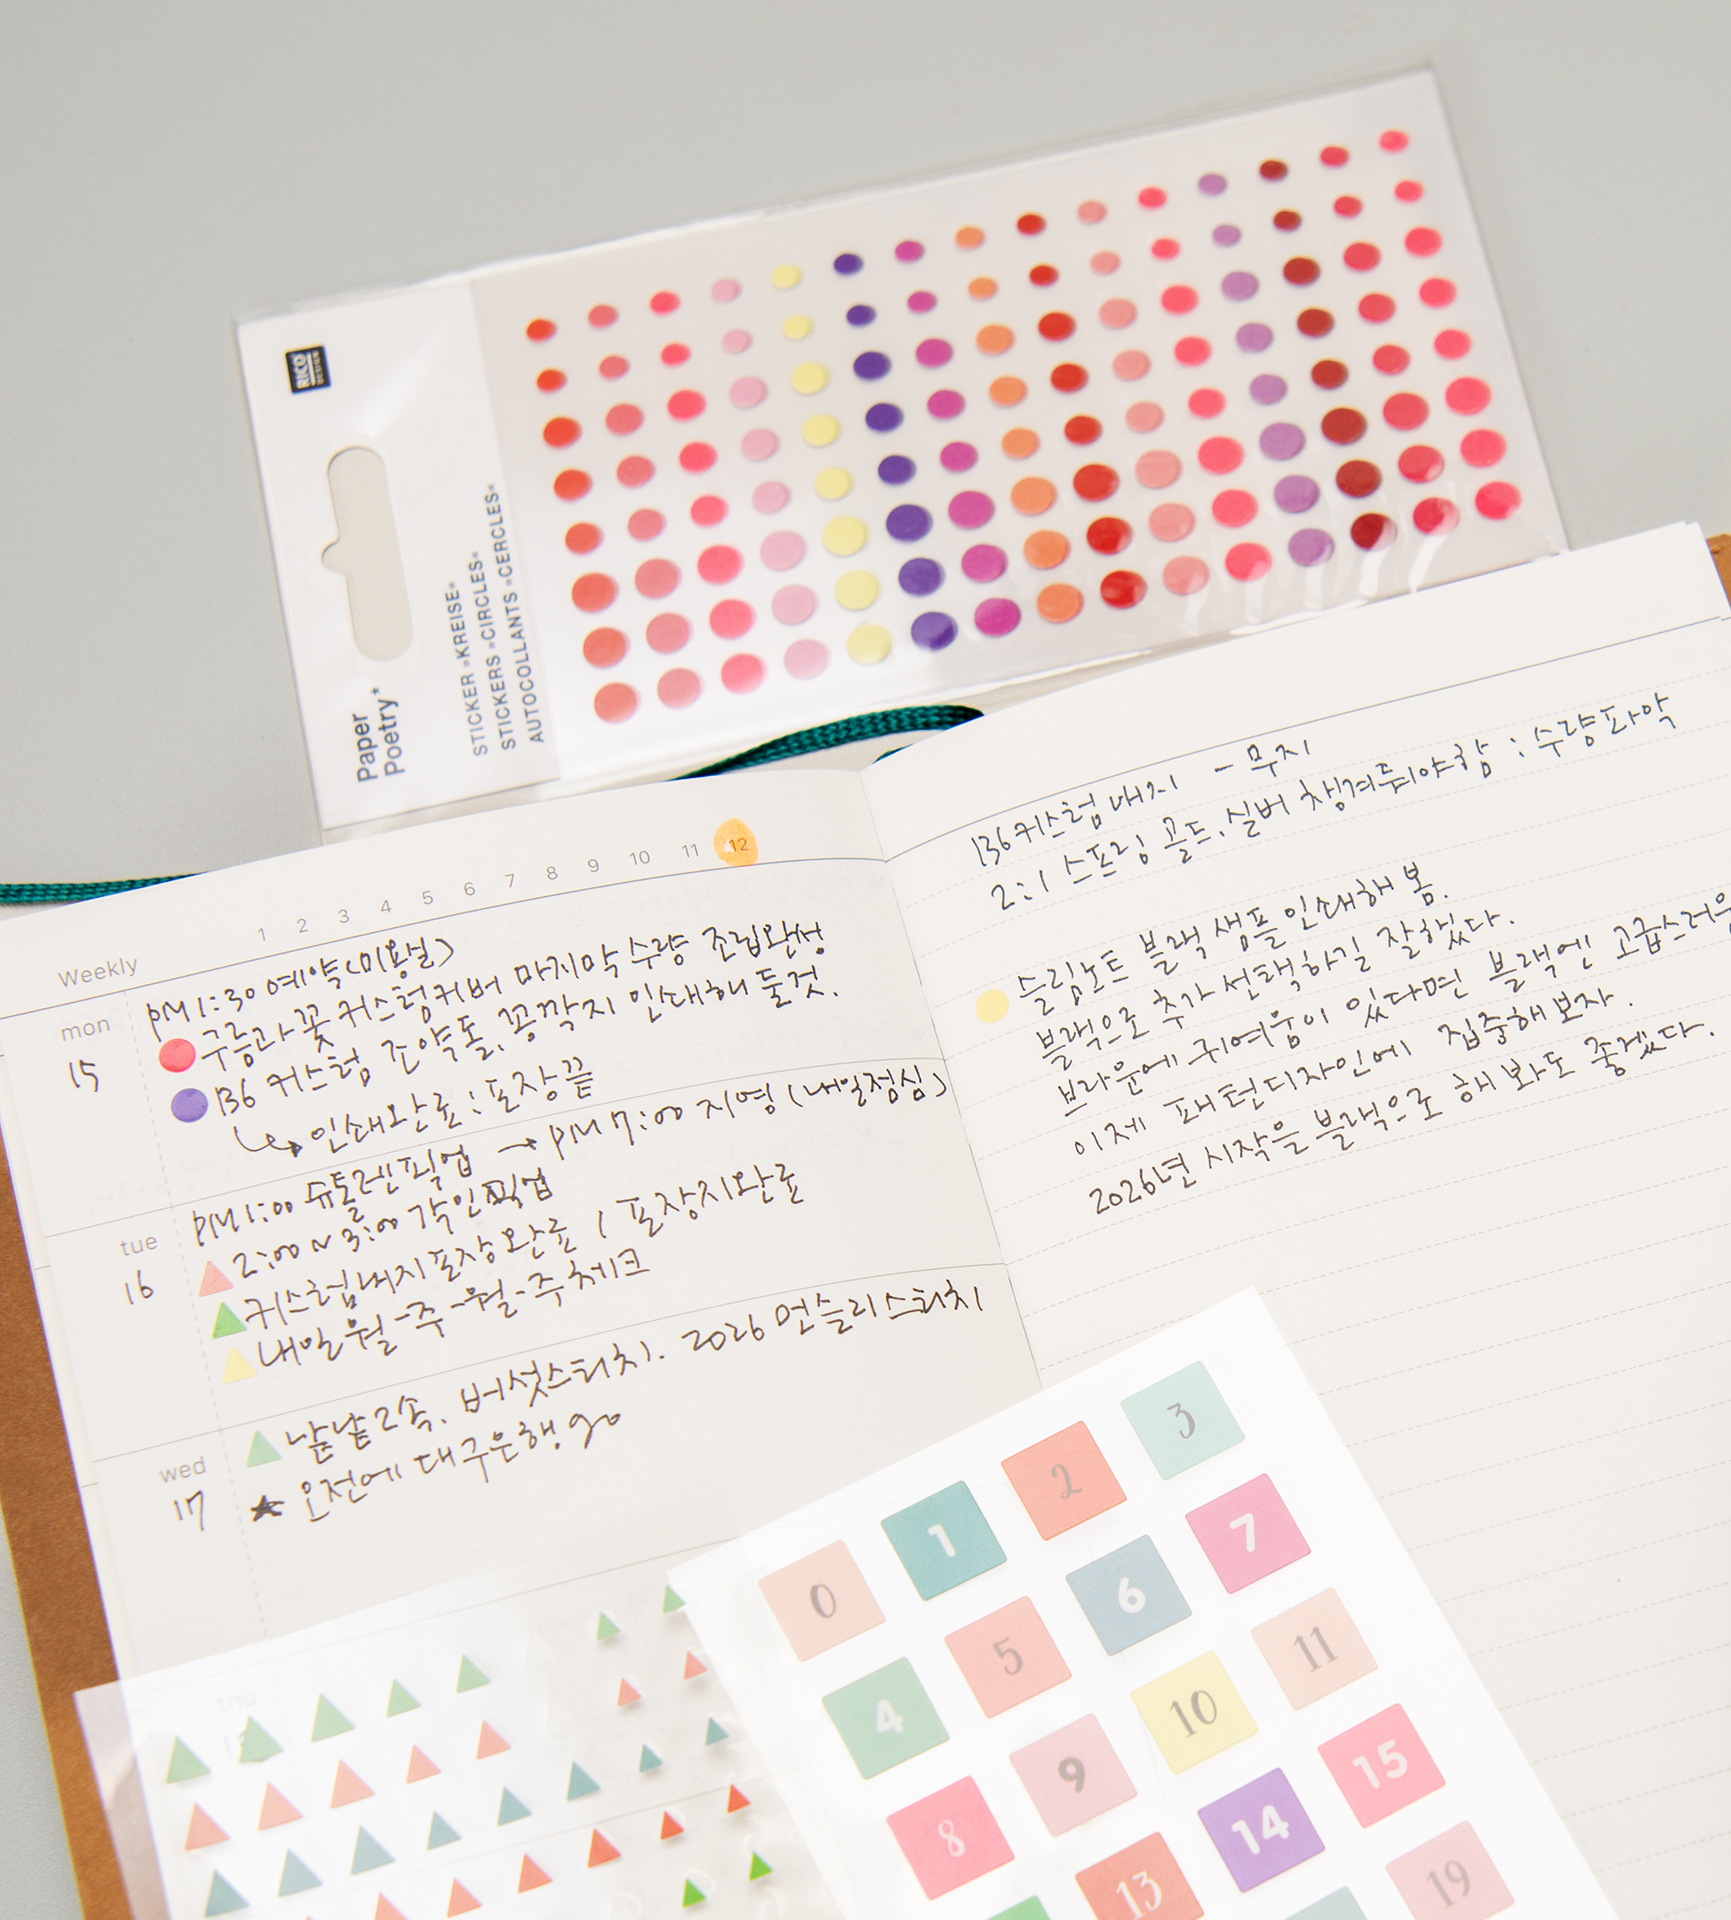 RICO
DESIGN
Paper
Poetry*
STICKER »KREISE«
STICKERS »CIRCLES«
AUTOCOLLANTS »CERCLES«
1 2 3 4 5 6 7 8 9 10 11 12
Weekly
mon
15
PM 1:30 예약(미용실)
구름과 꽃 커스텀커버 마지막 수량 조립완성
B6 커스텀 조약돌, 콩깍지 인쇄해 둘것.
↳ 인쇄완료 : 포장끝
tue
16
PM 1:00 슈톨렌픽업 → PM 7:00 지영 (내일점심)
2:00 ~ 3:00 각인픽업
커스텀내지포장완료 / 포장지완료
내일 월-주-월-주 체크
wed
17
낱낱2속. 버섯스티치. 2026 먼슬리스티치
★ 오전에 대구은행 go
thu
B6커스텀내지 - 무지
2:1 스프링 골드, 실버 챙겨줘야함 : 수량파악
슬림노트 블랙 샘플 인쇄해 봄.
블랙으로 추가 선택하길 잘했다.
브라운에 귀여움이 있다면 블랙엔 고급스러움
이제 패턴디자인에 집중해보자.
2026년 시작을 블랙으로 해봐도 좋겠다.
0 1 2 3
4 5 6 7
8 9 10 11
13 14 15
19